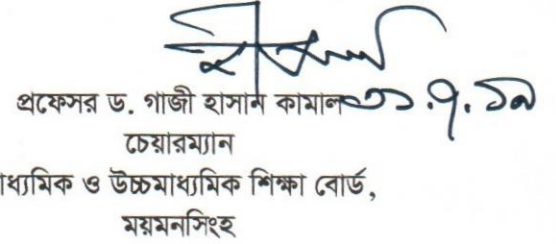 প্রফেসর ড. গাজী হাসান কামাল ৩১.৭.১৯
চেয়ারম্যান
ধ্যমিক ও উচ্চমাধ্যমিক শিক্ষা বোর্ড,
ময়মনসিংহ